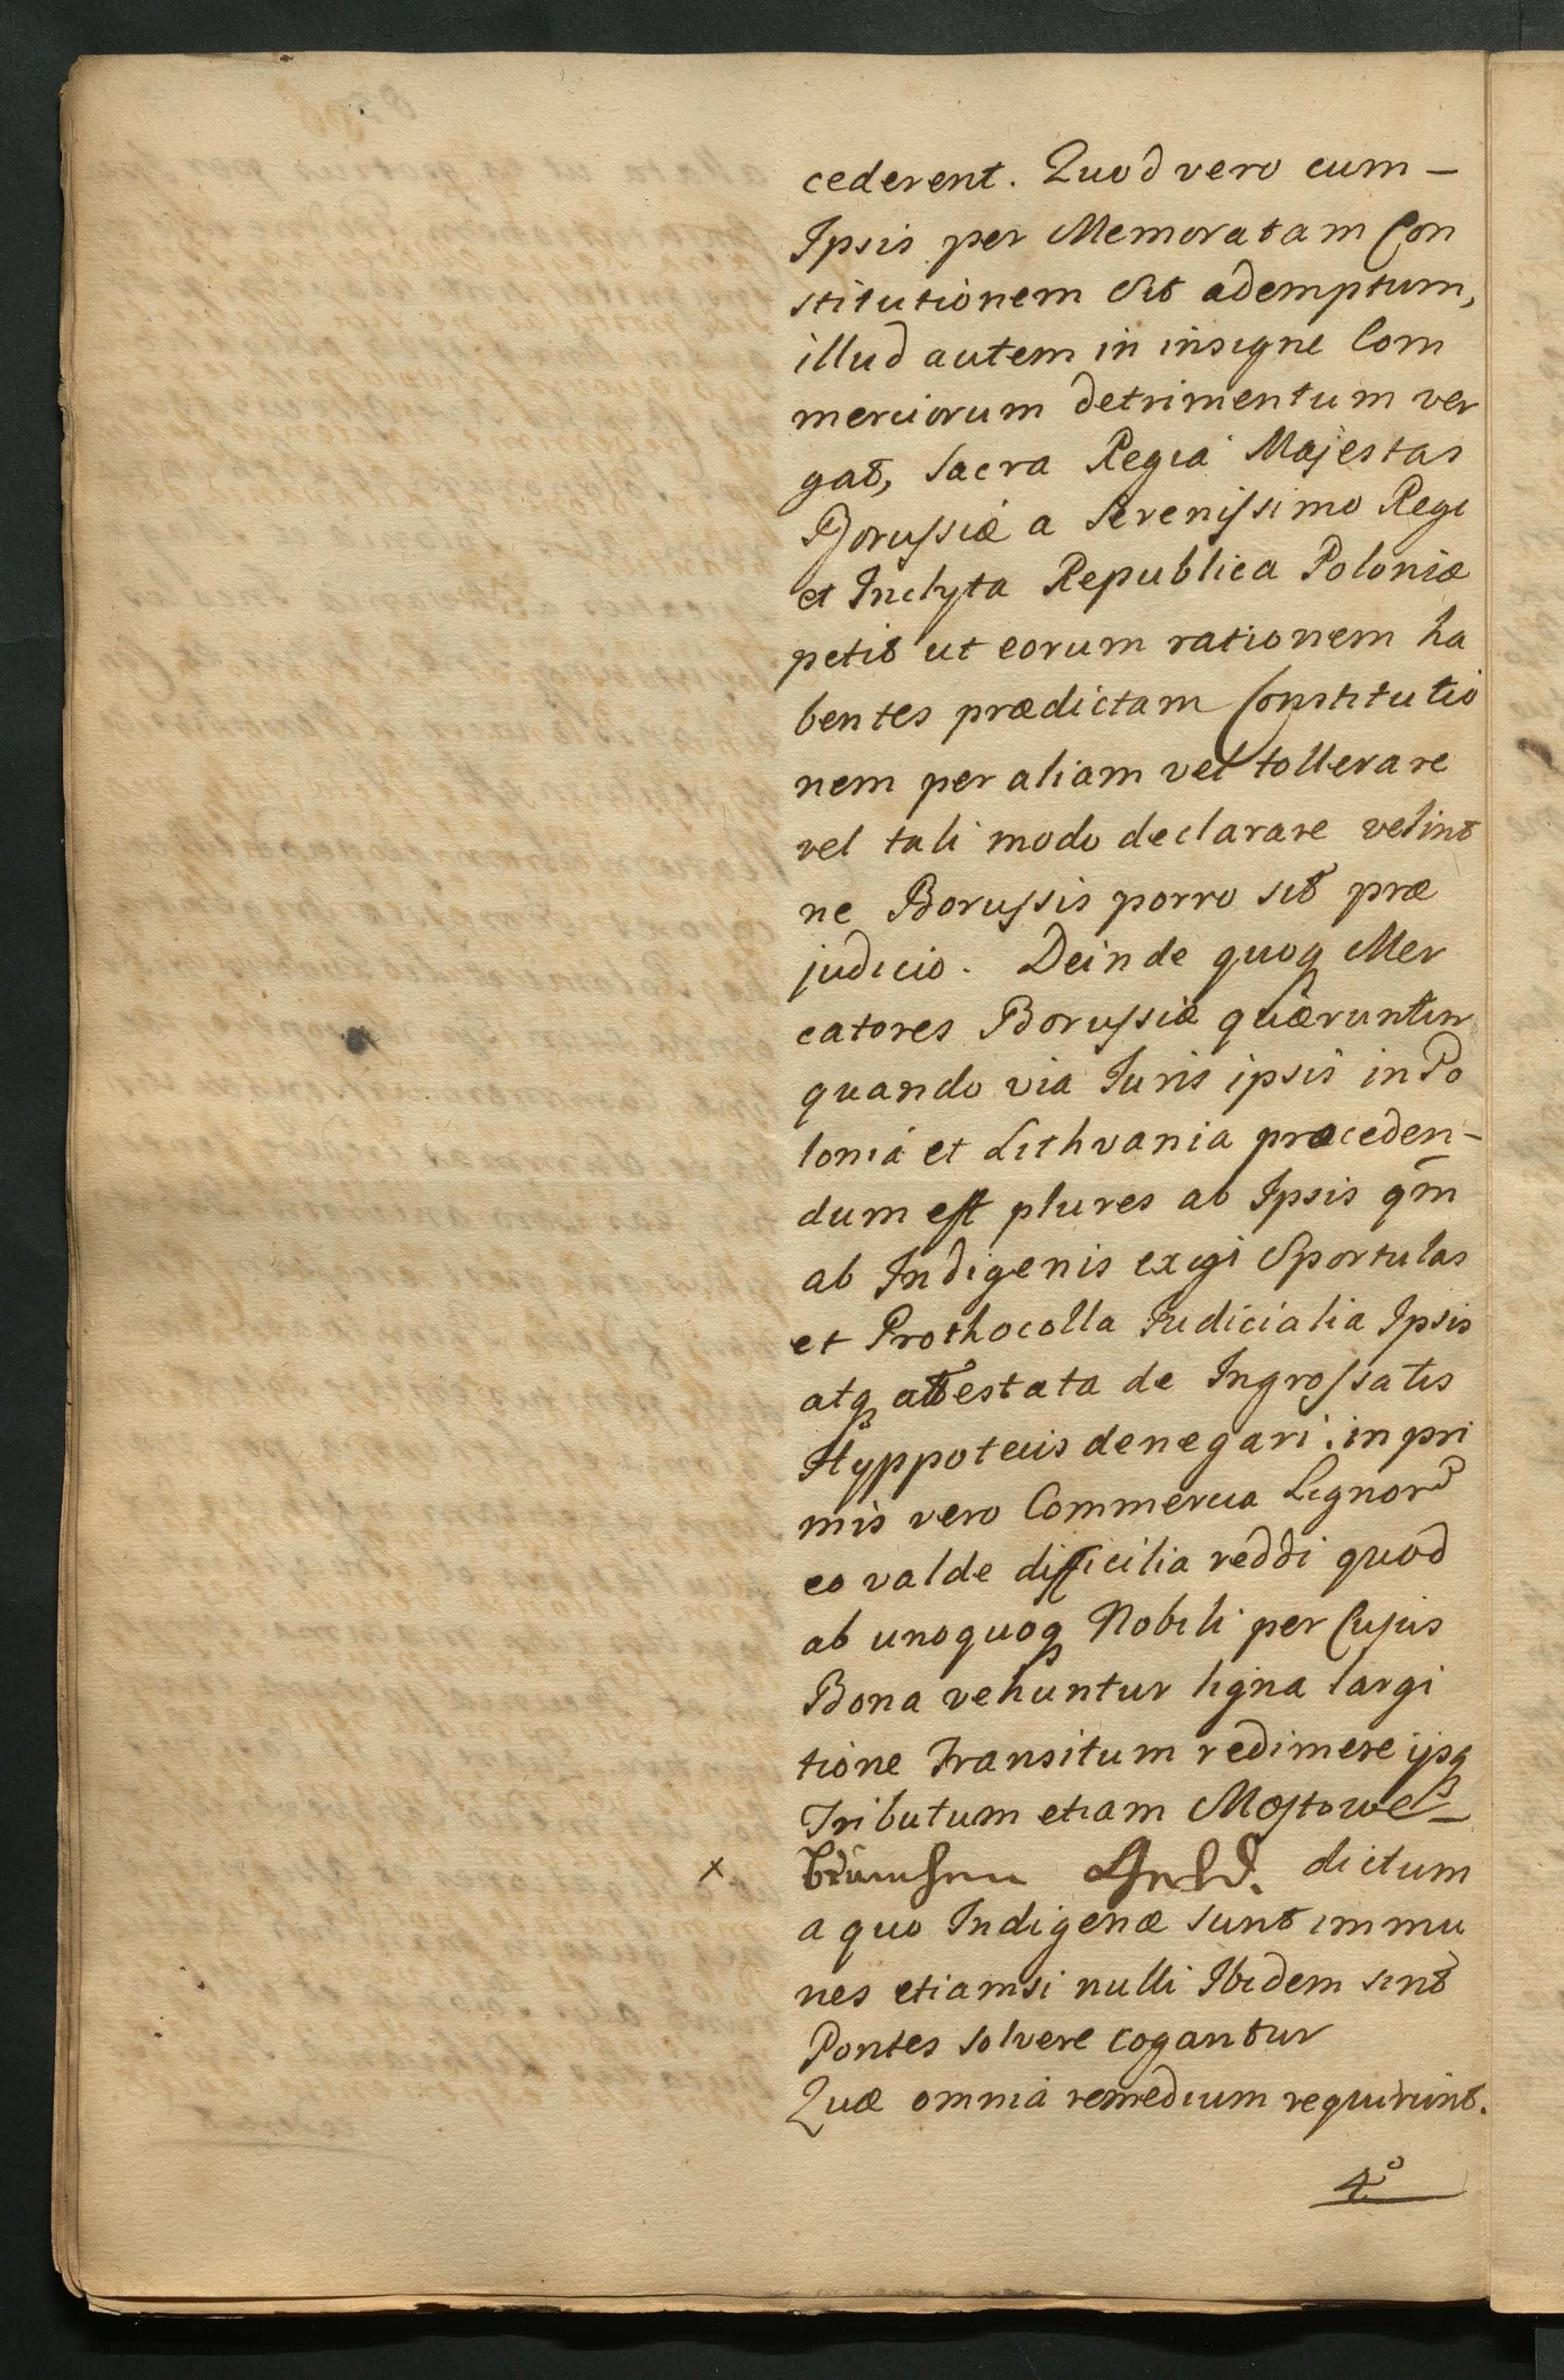 cederent. Quod vero cum –
Ipsis per Memoratam Con
stitutionem sit ademptum,
illud autem in insigne Com
merciorum detrimentum ver
gat, Sacra Regia Majestas
Borussiæ a Serenissimo Rege
et Inclyta Republica Poloniæ
petit ut eorum rationem ha
bentes prædictam Constitutio
nem per aliam vel tollerare
vel tali modo declarare velint
ne Borussis porro sit præ
judicio. Deinde quoq Mer
catores Borussiæ quæruntur
quando via Juris ipsis in Po
lonia et Lithvania proceden-
dum est plures ab Ipsis qm̄
ab Indigenis exigi Sportulas
et Prothocolla Judicialia Ipsis
atq attestata de Ingrossatis
Hyppotecis denegari, in pri
mis vero Commercia Lignor
eo valde difficilia reddi quod
ab unoquoq Nobili per Cujus
Bona vehuntur ligna largi
tione Transitum redimere ijsq
Tributum etiam Mostowe –
x Brüchen Geld. dictum
a quo Indigenæ sunt immu
nes etiamsi nulli Ibidem sint
Pontes solvere cogantur
Quæ omnia remedium requirunt.
4º